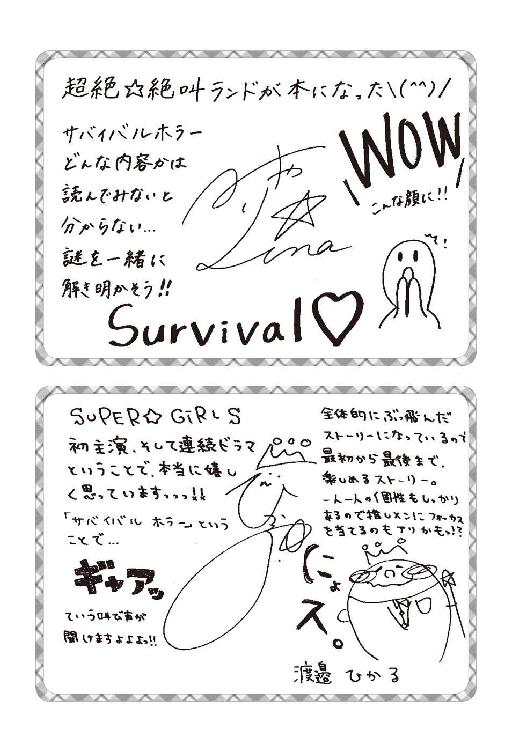 超絶☆絶叫ランドが本になった\(^^)/
サバイバルホラー
どんな内容かは
読んでみないと
分からない…
謎を一緒に
解き明かそう!!
WOW
こんな顔に!!
Lina
Survival♡
SUPER☆GiRLS
初主演、そして連続ドラマ
ということで、本当に嬉し
く思っていますっっっ!!
「サバイバル ホラー」という
ことで…
ギャアッ
ていう叫び声が
聞けますよよよっ!!
全体的にぶっ飛んだ
ストーリーになっているので
最初から最後まで、
楽しめるストーリー。
一人一人の個性もしっかり
あるので推しメンにフォーカス
を当てるのもアリかもっ!?
にょ
ス。
渡邉 ひかる